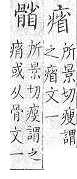 㾪
所景切瘦謂
之㾪文一
所景切瘦謂之
㾪或从骨文一